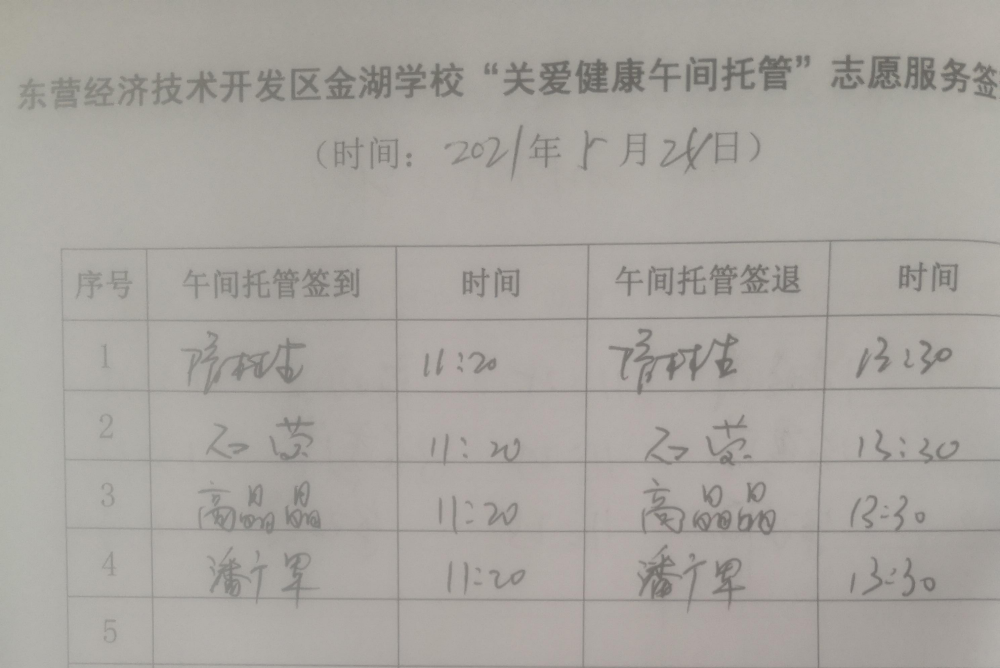 东营经济技术开发区金湖学校“关爱健康午间托管”志愿服务签
（时间：2021年5月 日）
序号 午间托管签到 时间 午间托管签退 时间
1 11:20 13:30
2 石 11:20 石 13:30
3 高晶晶 11:20 高晶晶 13:30
4 潘广军 11:20 潘广军 13:30
5